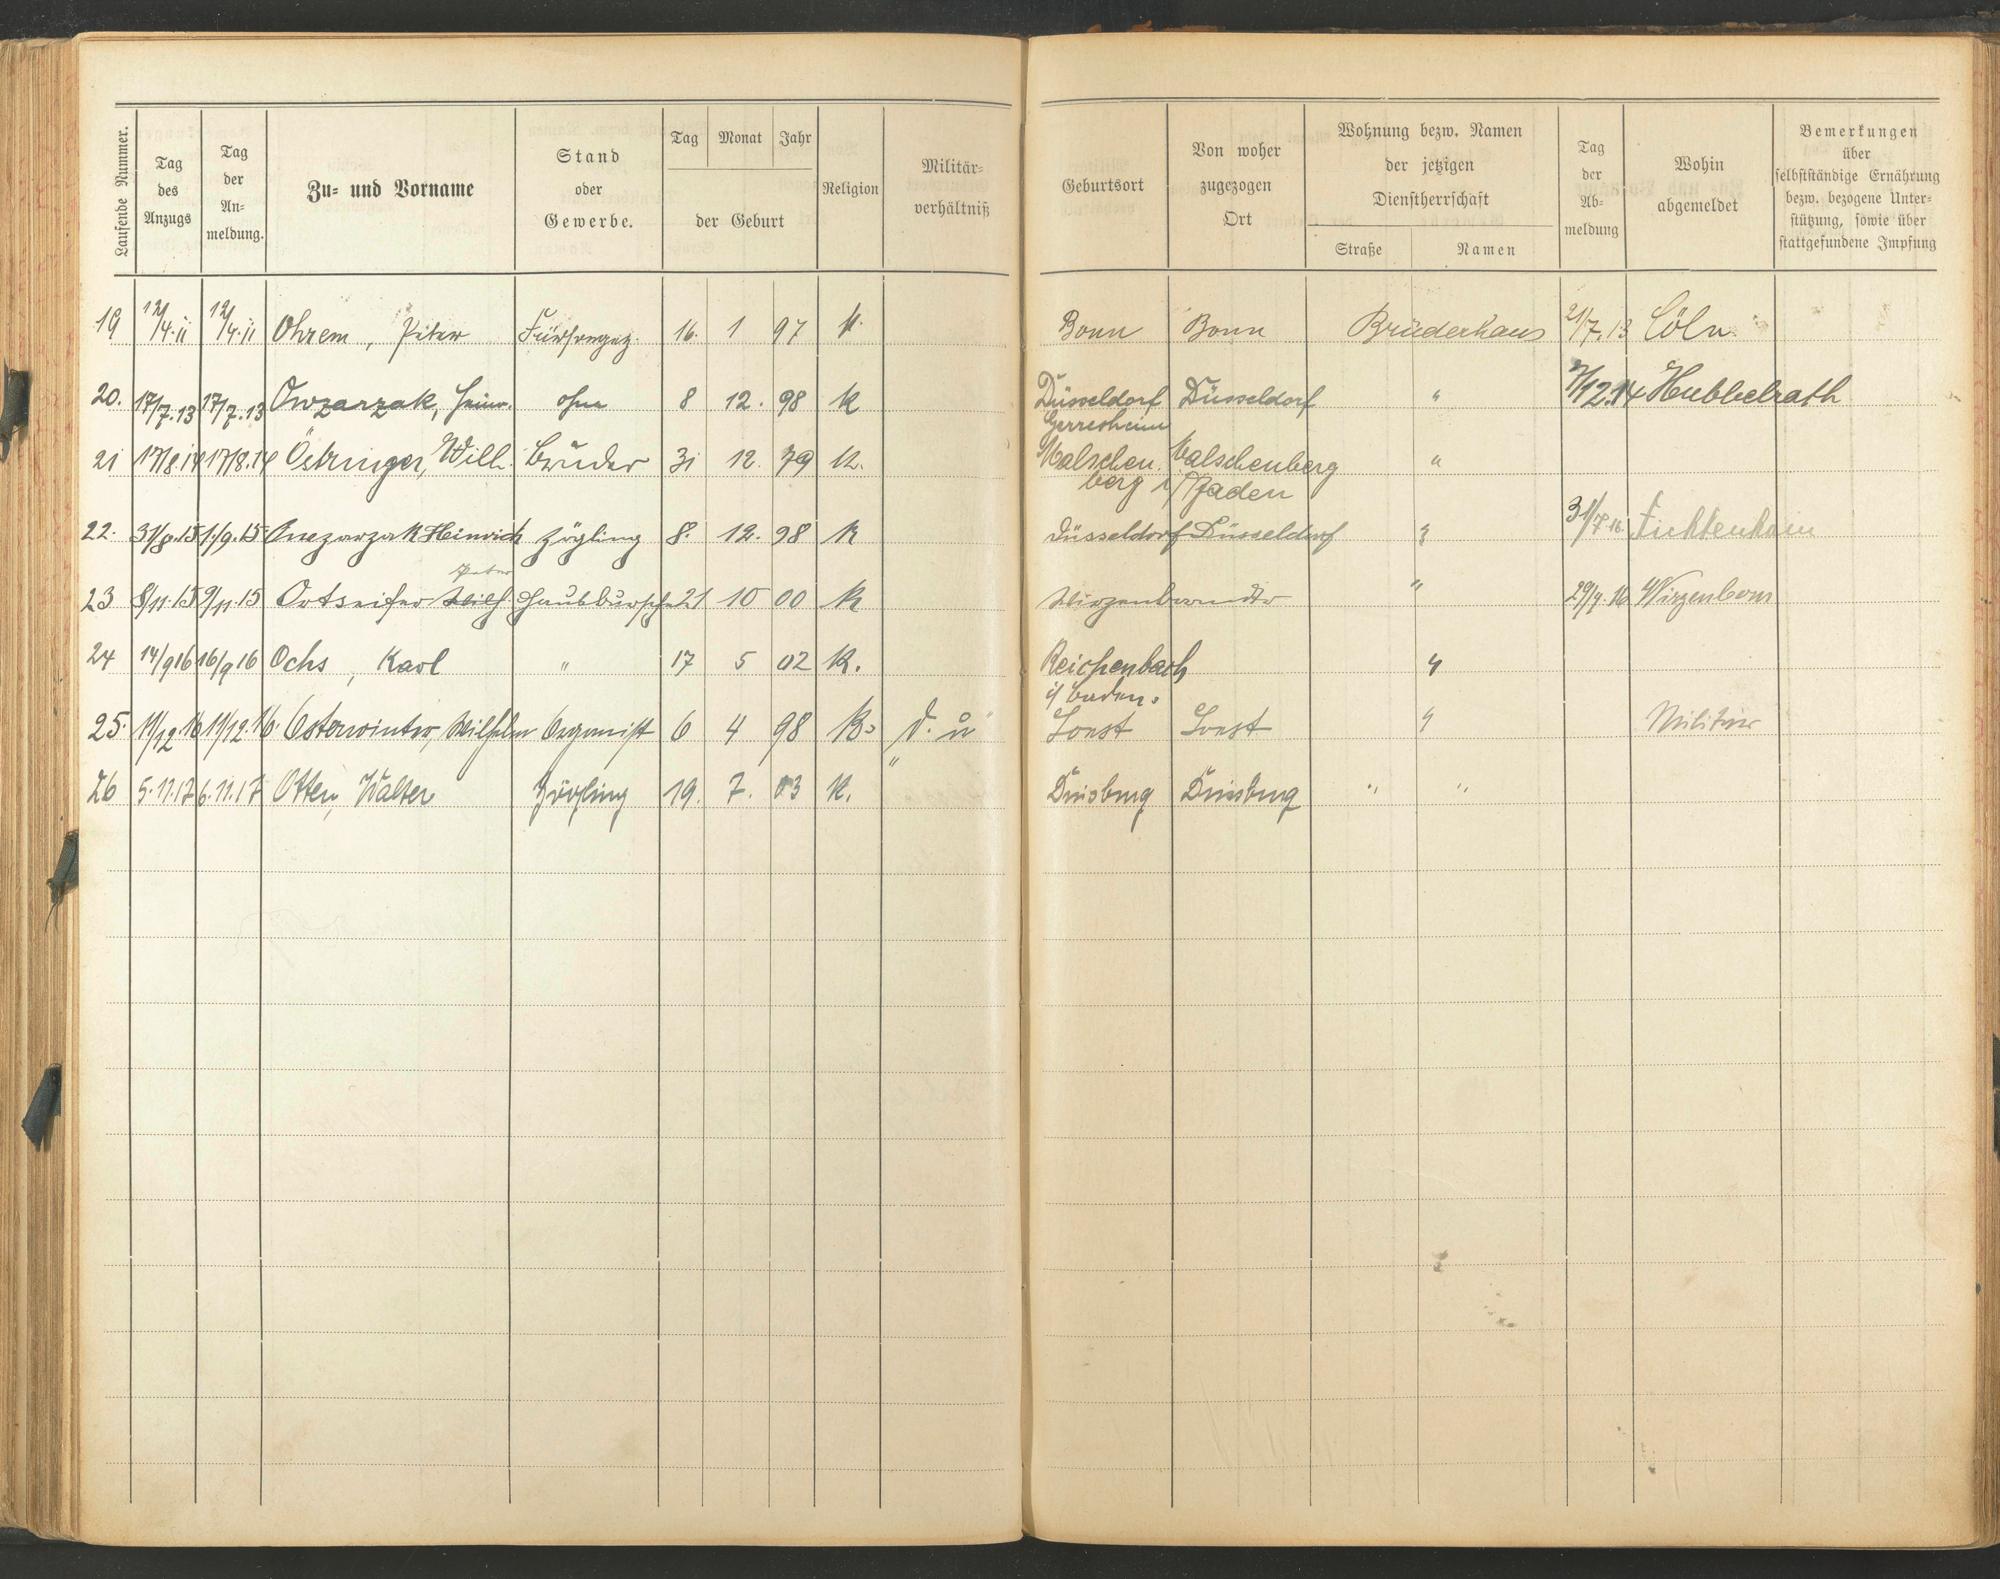 Laufende Nummer. Tag des Anzugs Tag der Anmeldung. Zu- und Vorname Stand oder Gewerbe. Tag Monat Jahr der Geburt Religion Militärverhältniß Geburtsort Von woher zugezogen Ort Wohnung bezw. Namen der jetzigen Dienstherrschaft Straße Namen Tag der Abmeldung Wohin abgemeldet Bemerkungen über selbstständige Ernährung bezw. bezogene Unterstützung, sowie über stattgefundene Impfung
19 12/4.11 12/4.11 Ohrem, Peter Fürsorgez. 16. 1 97 K. Bonn Bonn Brüderhaus 2/7.13 Cöln
20. 17/7.13 17/7.13 Owzarzak, Heinr. ohne 8 12. 98 K Düsseldorf Düsseldorf " 7/12.14 Hubbelrath
Gerresheim
21 17/8.14 17/8.14 Östringer, Wilh. Bruder 31 12. 79 K. Malschen Malschenberg "
berg i/Baden
22. 31/8.15 1/9.15 Owezarzak Heinrich Zögling 8. 12. 98 K Düsseldorf Düsseldorf " 31/7.16. Fichtenhain
Peter
23 8/11.15 9/11.15 Ortseifer Wilh. Hausbursche 21 10 00 K " 29/7.16 Wirzenborn
24 14/9 16 16/9 16 Ochs, Karl " 17 5 02 K. Reichenbach "
i/ Baden.
25. 11/12.16 11/12.16. Osterwinter, Wilhelm Organist 6 4 98 K. "d. u" "  Militär
26 5.11.17 6.11.17 Otten, Walter Zögling 19. 7. 03 K. Duisburg Duisburg " "